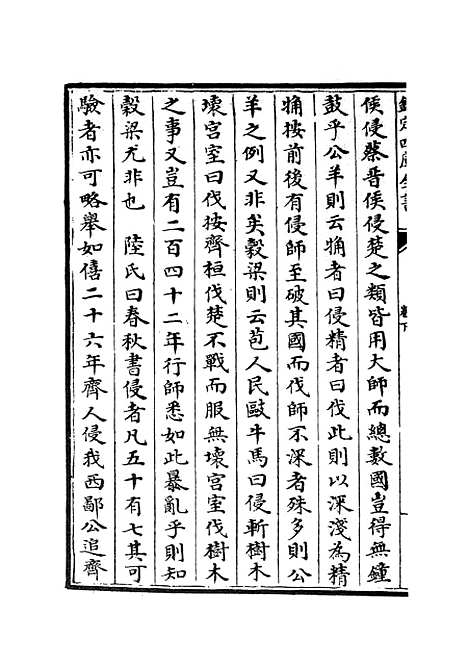 欽定四庫全書
卷下
侯侵蔡晉侯侵楚之類皆用大師而總數國豈得無鐘
鼓乎公羊則云觕者曰侵精者曰伐此則以深淺為精
觕按前後有侵師至破其國而伐師不深者殊多則公
羊之例又非矣穀梁則云苞人民敺牛馬曰侵斬樹木
壞宫室曰伐按齊桓伐楚不戰而服無壞宫室伐樹木
之事又豈有二百四十二年行師悉如此暴亂乎則知
穀梁尤非也　陸氏曰春秋書侵者凡五十有七其可
驗者亦可略舉如僖二十六年齊人侵我西鄙公追齊